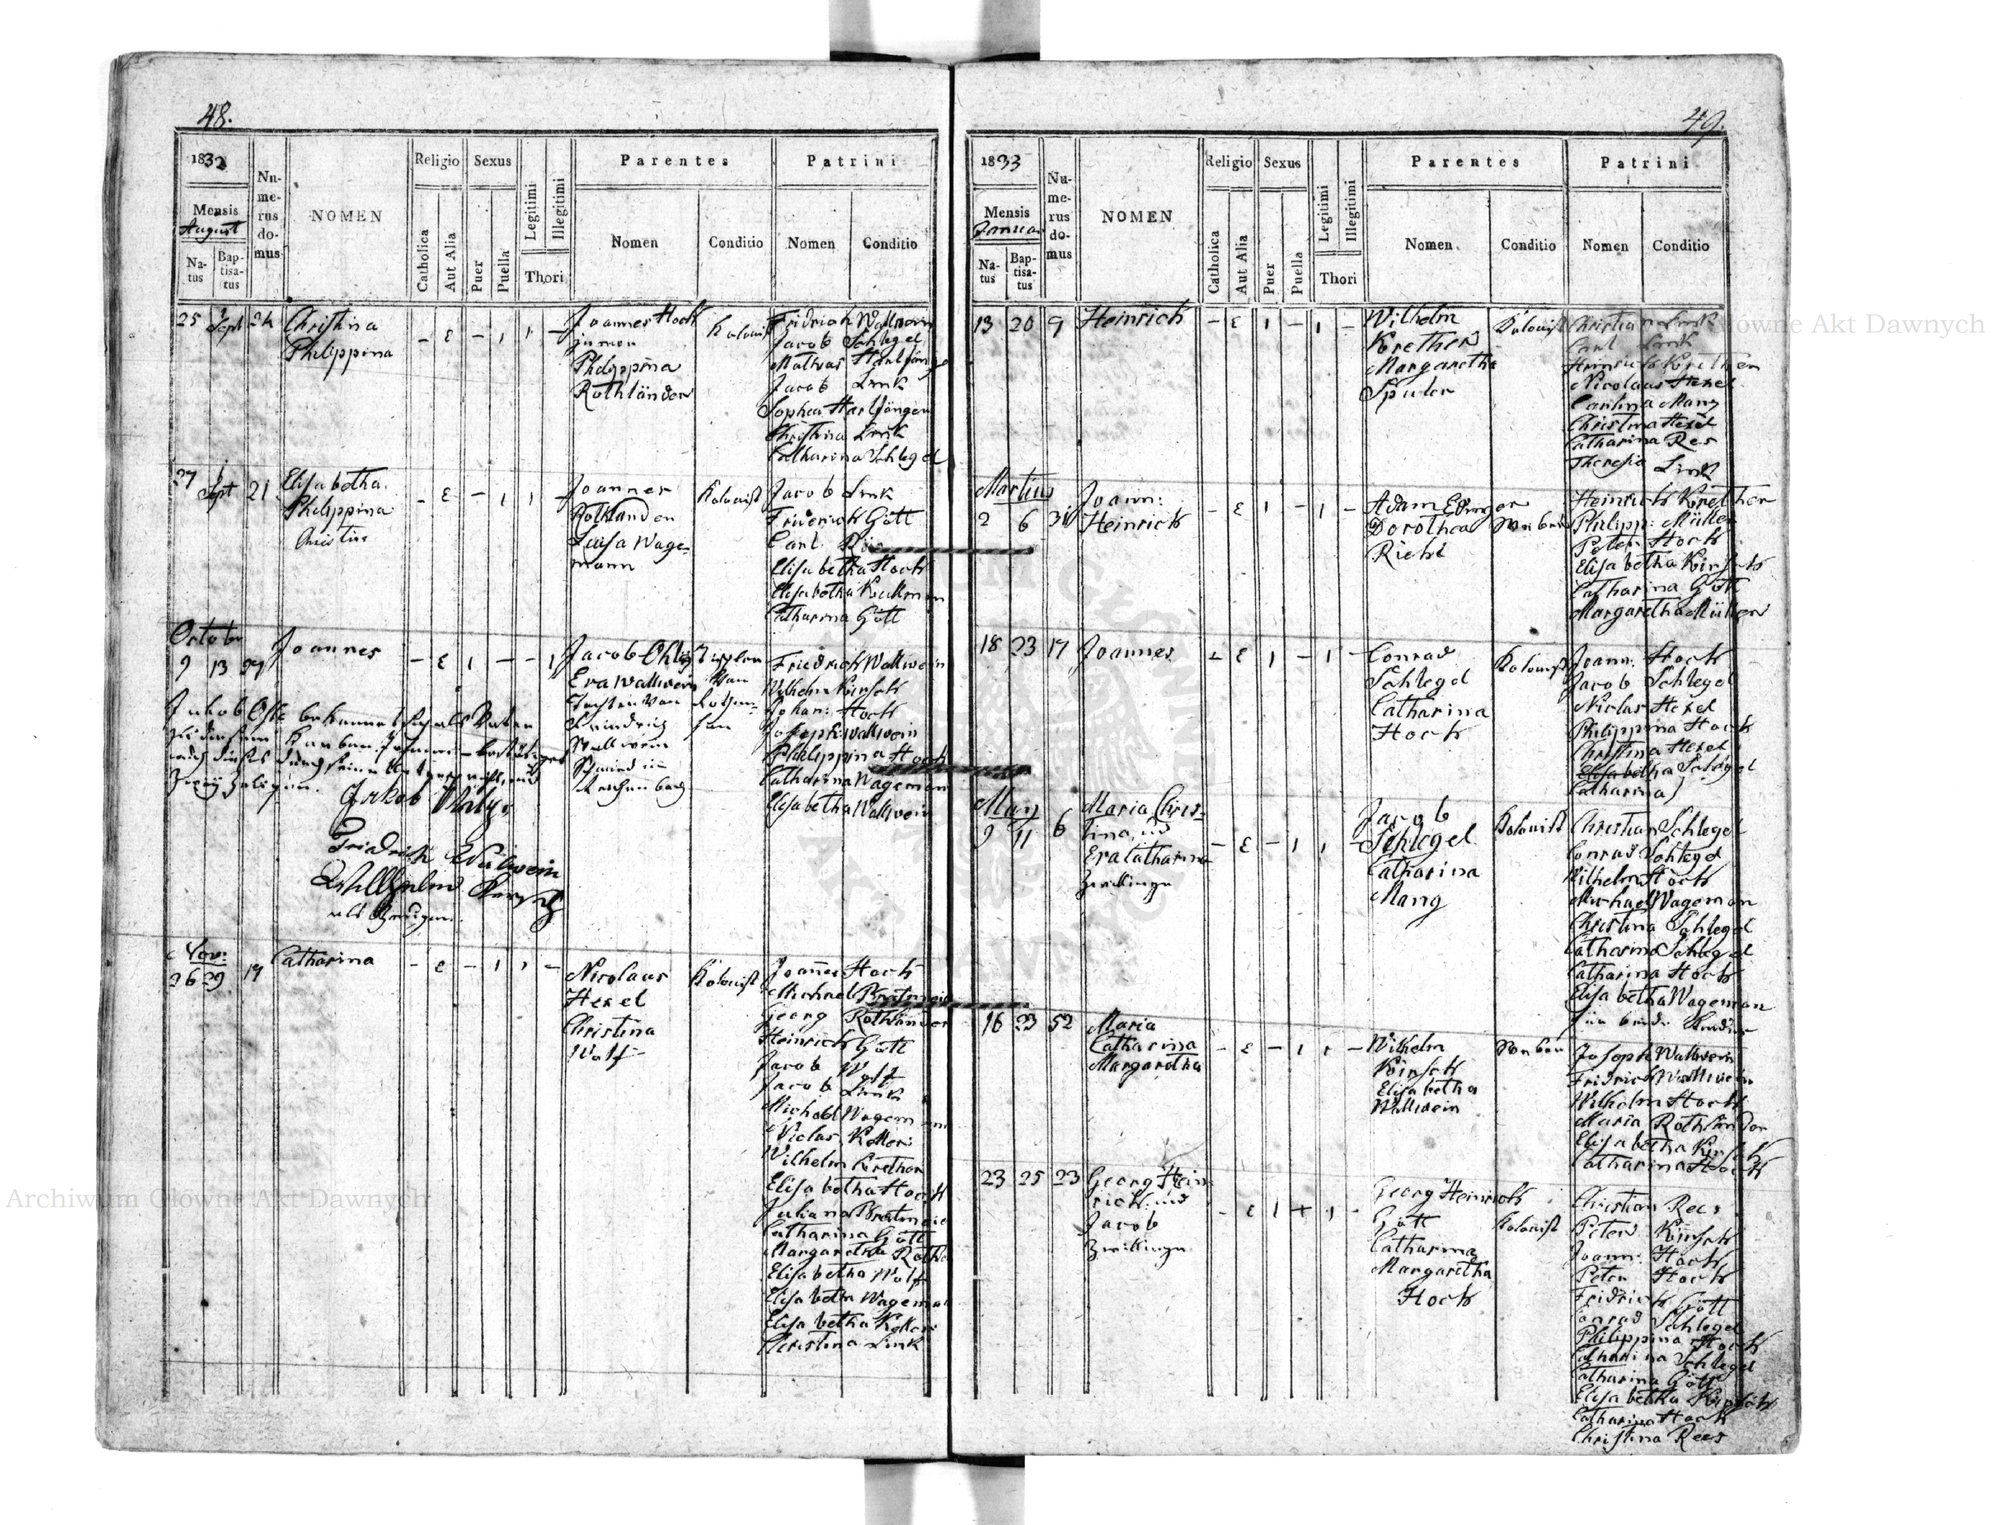 48.
1832
Mensis
August
Na-
tus
Bap-
tisa-
tus
Nu-
me-
rus
do-
mus
NOMEN
Religio
Catholica
Aut Alia
Sexus
Puer
Puella
Legitimi
Illegitimi
Thori
Parentes
Nomen
Conditio
Patrini
Nomen
Conditio
25 Sept 24
Christina
Philippina
- E - 1 1 -
Joannes Hock
junior
Philippina
Rothländer
Kolonist
Fridrich Wallwein
Jacob Schlegel
Mathias
Jacob Link
Sophia
Christina Link
Catharina Schlegel
27 Sept 21
Elisabetha
Philippina
- E - 1 1 -
Joannes
Rothländer
Luisa Wage-
mann
Kolonist
Jacob Link
Friderich Gött
Carl
Elisabetha Hock
Elisabetha Kullman
Catharina Gött
October
9 13 27
Joannes
- E 1 - - 1
Jacob
Eva Wallwein
Tochter von
Friedrich
Wallwein
Schmied in
Reichenbach
Friedrich Wallwein
Wilhelm Kirsch
Johan: Hock
Joseph Wallwein
Philippina Hock
Catharina Wageman
Elisabetha Wallwein
Jakob
Friedrich Walwein
Willhelm
als Zeugen.
Nov:
26 29 17
Catharina
- E - 1 1 -
Nicolaus
Hexel
Christina
Wolf
Kolonist
Joannes Hock
Michael
Georg Rothländer
Heinrich Gött
Jacob Wolf
Jacob Link
Michael Wageman
Niclas Kelleri
Wilhelm Krether
Elisabetha Hock
Juliana
Catharina Gött
Margaretha
Elisabetha Wolf
Elisabetha Wageman
Elisabetha Kelleri
Christina Link
49.
1833
Mensis
Januar
Na-
tus
Bap-
tisa-
tus
Nu-
me-
rus
do-
mus
NOMEN
Religio
Catholica
Aut Alia
Sexus
Puer
Puella
Legitimi
Illegitimi
Thori
Parentes
Nomen
Conditio
Patrini
Nomen
Conditio
13 20 9
Heinrich
- E 1 - 1 -
Wilhelm
Krether
Margaretha
Spuler
Kolonist
Christian Link
Carl Link
Heinrich Krether
Nicolaus Hexel
Carlina Mang
Christina Hexel
Catharina Res
Theresia Link
Martius
2 6
Joann:
Heinrich
- E 1 - 1 -
Adam
Dorothea
Riehl
Heinrich Krether
Philipp: Müller
Peter Hock
Elisabetha Kirsch
Catharina Gött
Margaretha Müller
18 23 17
Joannes
- E 1 - 1 -
Conrad
Schlegel
Catharina
Hock
Kolonist
Joann: Hock
Jacob Schlegel
Niclas Hexel
Philippina Hock
Christina Hexel
Elisabetha Schlegel
Catharina
May
9 11 6
Maria Chris-
tina, und
Eva Catharina
Zwillinge
- E - 1 1 -
Jacob
Schlegel
Catharina
Mang
Kolonist
Christian Schlegel
Conrad Schlegel
Wilhelm Hock
Michael Wageman
Christina Schlegel
Catharina Schlegel
Catharina Hock
Elisabetha Wageman
für beide Kinder
16 23 52
Maria
Catharina
Margaretha
- E - 1 1 -
Wilhelm
Kirsch
Elisabetha
Wallwein
Joseph Wallwein
Fridrich Wallwein
Wilhelm Hock
Maria Rothländer
Elisabetha Kirsch
Catharina Hock
23 25 23
Georg Hein
rich, und
Jacob
Zwillinge
- E 1 + 1 -
Georg Heinrich
Gött
Catharina
Margaretha
Hock
Kolonist
Christian Rees
Peter Kirsch
Joann: Hock
Peter Hock
Fridrich Gött
Conrad Schlegel
Philippina Hock
Catharina Schlegel
Catharina Gött
Elisabetha Kirsch
Catharina Hock
Christina Rees
Archiwum Główne Akt Dawnych